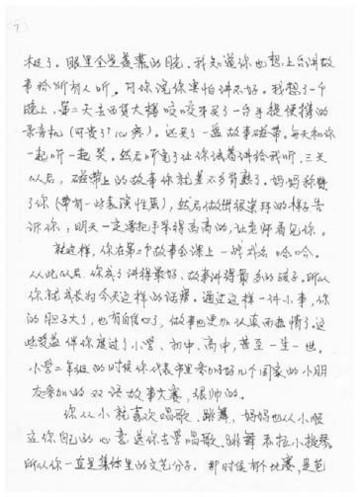 极了。眼里全是羡慕的目光。我知道你也想上台讲故
事给所有人听。可你说你害怕讲不好。我想了一个
晚上,第二天去百货大楼咬咬牙买了一台手提便携的
录音机(可贵了!心疼)。还买了一盘故事磁带,每天和你
一起听一起笑。然后听完了让你试着讲给我听。三天
以后,磁带上的故事你就差不多背熟了。妈妈称赞
了你(带有一些表演性质),然后做出很坚决的样子告
诉你,明天一定要把手举得高高的,让老师看见你。
就这样,你在第二个故事会课上一战成名 哈哈。
从此以后,你成了讲得最好、故事讲得最多的孩子。所以
你就成长为今天这样的话痨。通过这样一件小事,你
的胆子大了,也有自信心了,做事也更加认真而热情了。这
些效益伴你度过了小学、初中、高中,甚至一生一世。
小学二年级的时候你代表市里参加好几个国家的小朋
友参加的双语故事大赛,很帅的。
你从小就喜欢唱歌、跳舞,妈妈也从小服
从你自己的心意送你去学唱歌、跳舞和拉小提琴。
所以你一直是集体里的文艺分子。那时候有个比赛,是爸